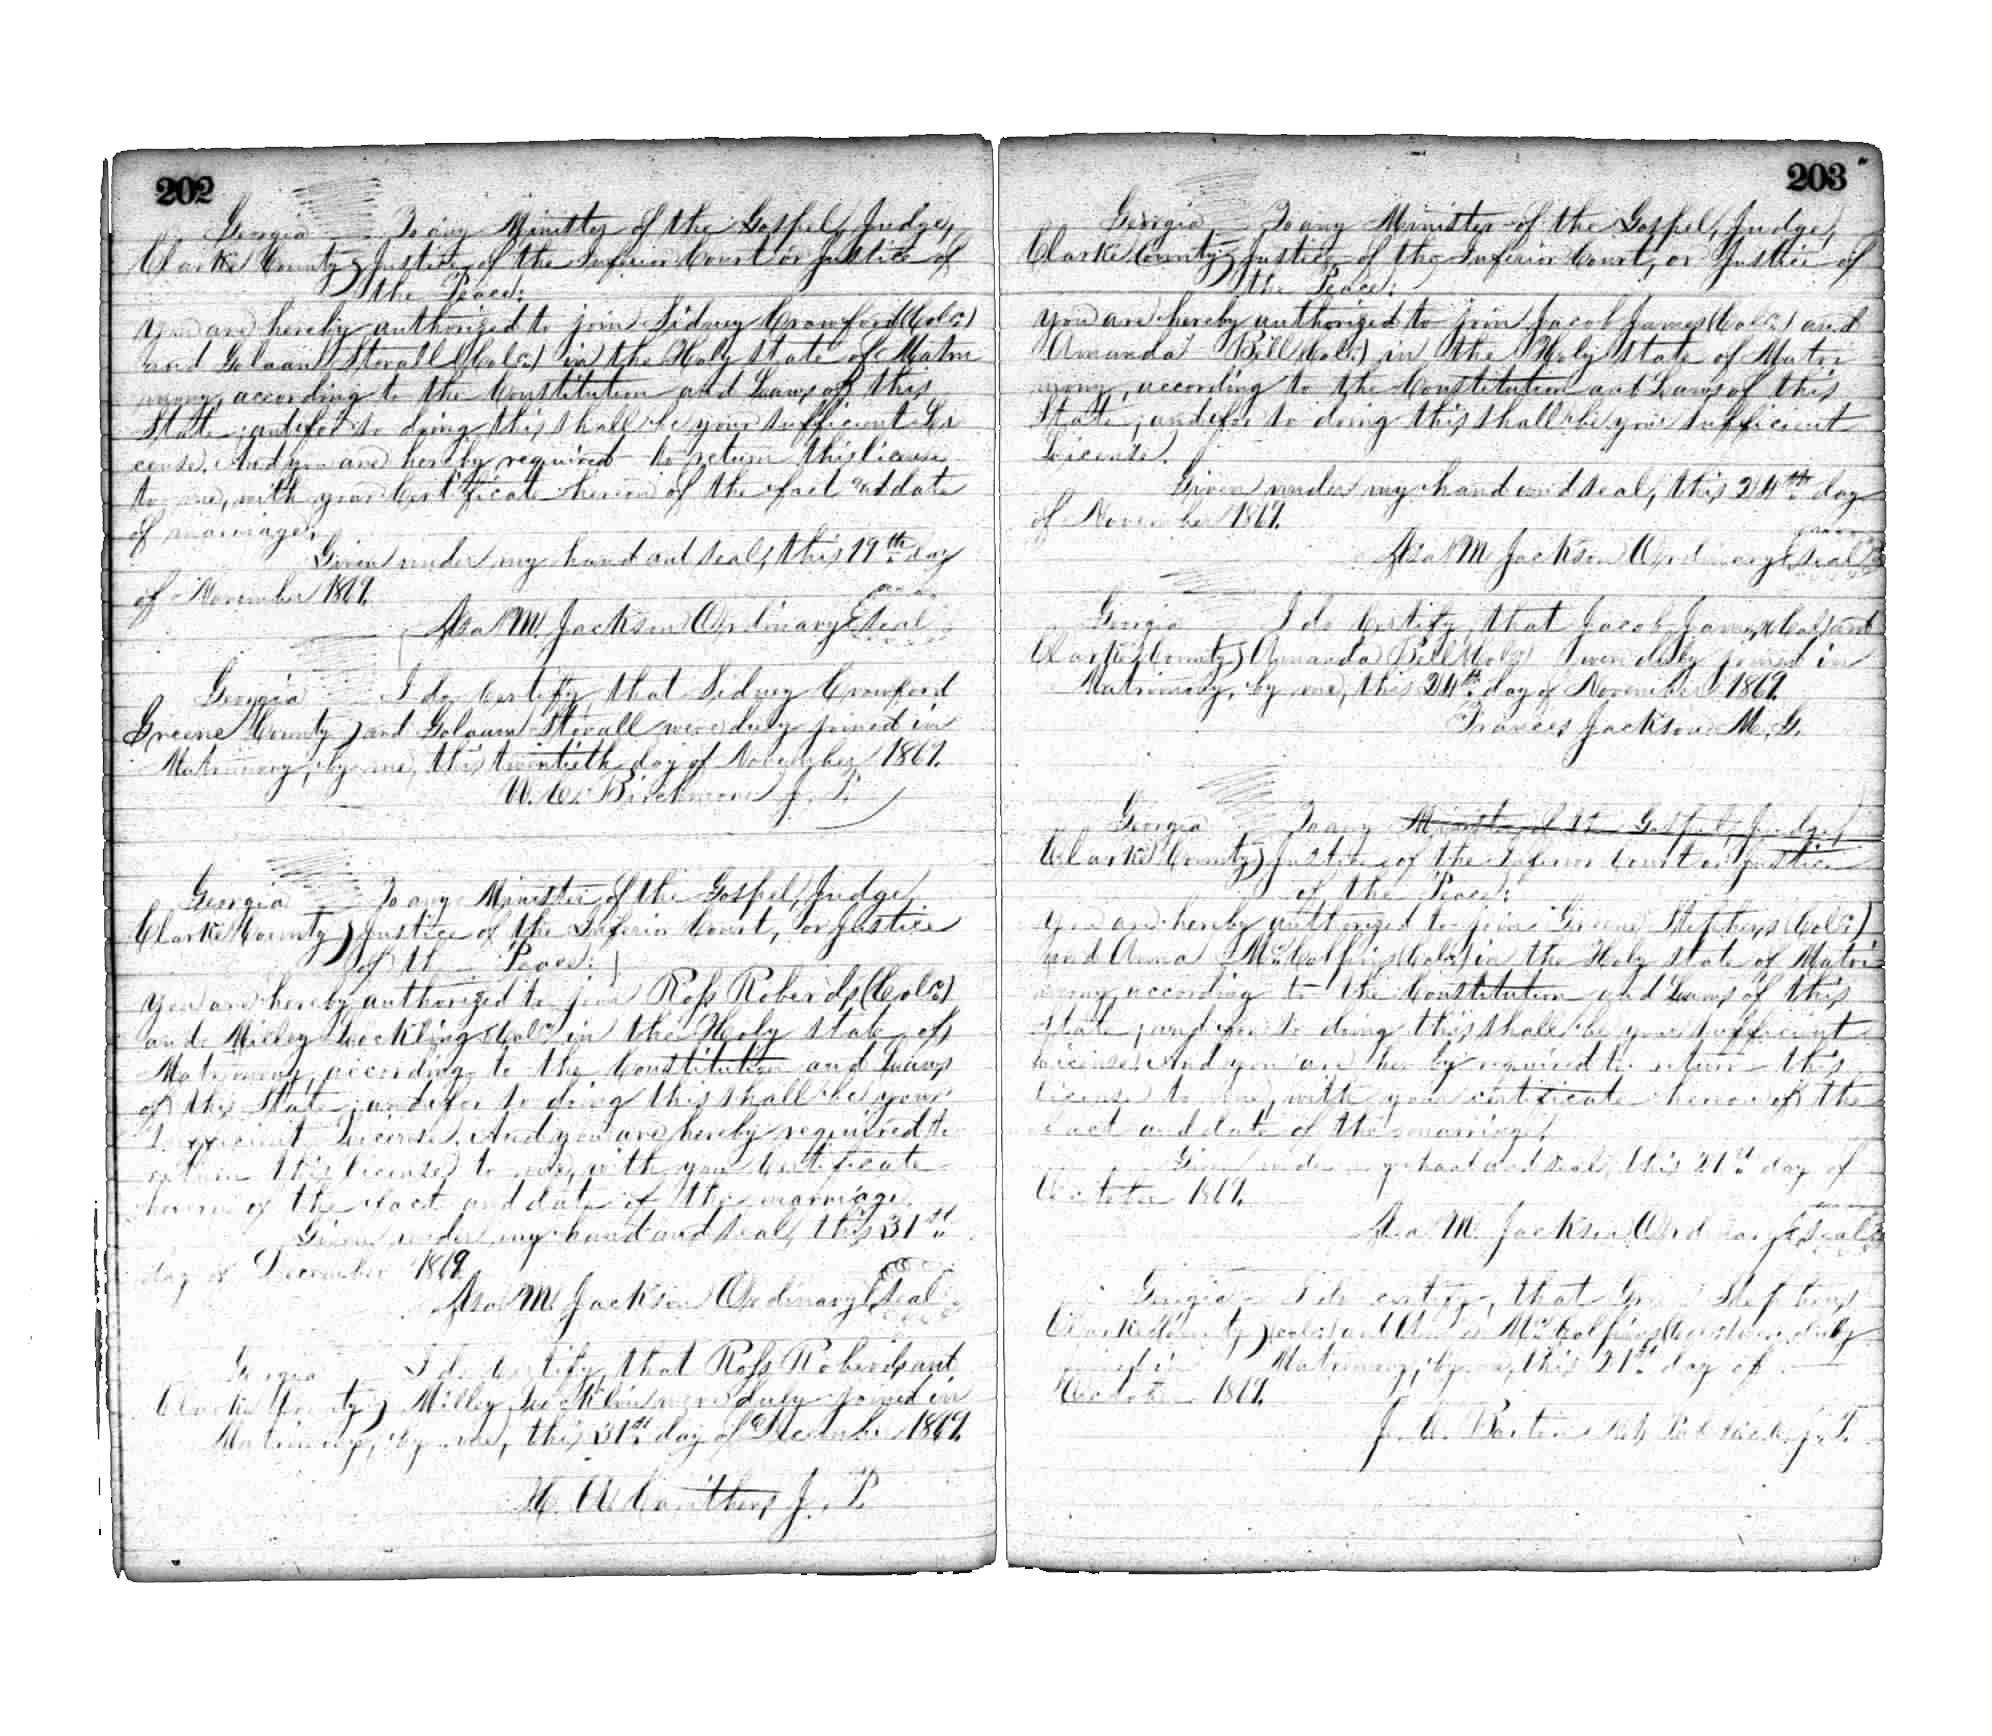 202
Georgia To any Minister of the Gospel, Judge,
Clarke County Justice of the Inferior Court or Justice of
the Peace:
You are hereby authorized to join Sidney Crawford (Cold)
and Stovall (Cold) in the Holy state of Matri
mony, according to the Constitution and Laws of this
State; and for so doing this shall be your sufficient Li
cense. And you are hereby required to return this license
to me, with your Certificate hereon of the fact and date
of marriage.
Given under my hand and seal, this 19th day
of November 1869.
Asa M. Jackson Ordinary Seal
Georgia I do Certify, that Sidney Crawford
Greene County and Stovall were duly joined in
Matrimony, by me, this twentieth day of November 1869.
W. J. P.
Georgia To any Minister of the Gospel, Judge,
Clarke County Justice of the Inferior Court, or Justice
of the Peace:
You are hereby authorized to join Ross Roberds, (Cold)
and Milley (Cold) in the Holy state of
Matrimony, according to the Constitution and Laws
of this State; and for so doing this shall be your
sufficient License. And you are hereby required to
return this license to me, with your Certificate
hereon of the fact and date of the marriage.
Given under my hand and seal, this 31st
day of December 1869.
Asa M. Jackson Ordinary Seal
Georgia I do certify, that Ross Roberds and
Clarke County Milley were duly joined in
Matrimony, by me, this 31st day of December 1869.
H. A. Carithers, J. P.
203
Georgia To any Minister of the Gospel, Judge,
Clarke County Justice of the Inferior Court, or Justice of
the Peace:
You are hereby authorized to join Jacob James (Cold) and
Amanda Bell (Cold) in the Holy state of Matri
mony, according to the Constitution and Laws of this
State; and for so doing this shall be your sufficient
License.
Given under my hand and seal, this 24th day
of November 1869.
Asa M Jackson Ordinary Seal
Georgia I do Certify, that Jacob James (Col) and
Clarke County Amanda Bell (Cold) were duly joined in
Matrimony, by me, this 24th day of November 1869.
Frances Jackson M. G.
Georgia To any Minister of the Gospel, Judge,
Clarke County Justice of the Inferior Court or Justice
of the Peace:
You are hereby authorized to join Greene Stephens (Cold)
and Anna (Cold) in the Holy state of Matri
mony, according to the Constitution and Laws of this
State; and for so doing this shall be your sufficient
License. And you are hereby required to return this
license to me, with your certificate hereon of the
fact and date of the marriage.
Given under my hand and seal, this 21st day of
October 1869.
Asa M. Jackson Ordinary Seal
Georgia I do certify, that Greene Stephens
Clarke County (cold) and were duly
joined in Matrimony, by me, this 21st day of
October 1869.
J. P.